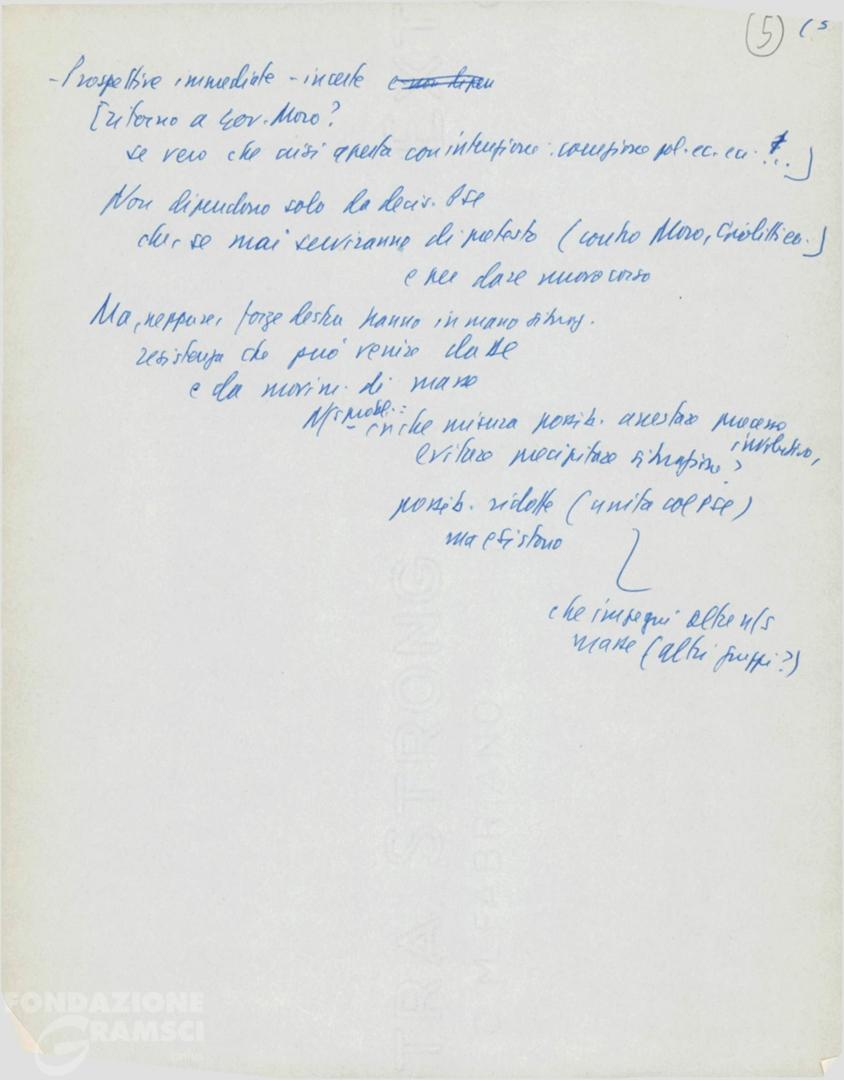 (5) (5
- Prospettive immediate - incerte e non dipen
[ritorno a Gov. Moro?
se vero che crisi aperta con intenzione: correzione pol. ec. ecc. !..]
Non dipendono solo da decis. PSI
che, se mai serviranno di pretesto (contro Moro,
e per dare nuovo corso
Ma, neppure, forze destra hanno in mano situaz.
resistenza che può venire da
e da movim. di massa
in che misura possib. arrestare processo
involutivo,
evitare precipitare situazione?
possib. ridotte (unità col PSI)
ma esistono
che impegni oltre ns
masse (altri gruppi?)
EXT
TRA STRONG
C.M. FABRIANO
FONDAZIONE
GRAMSCI